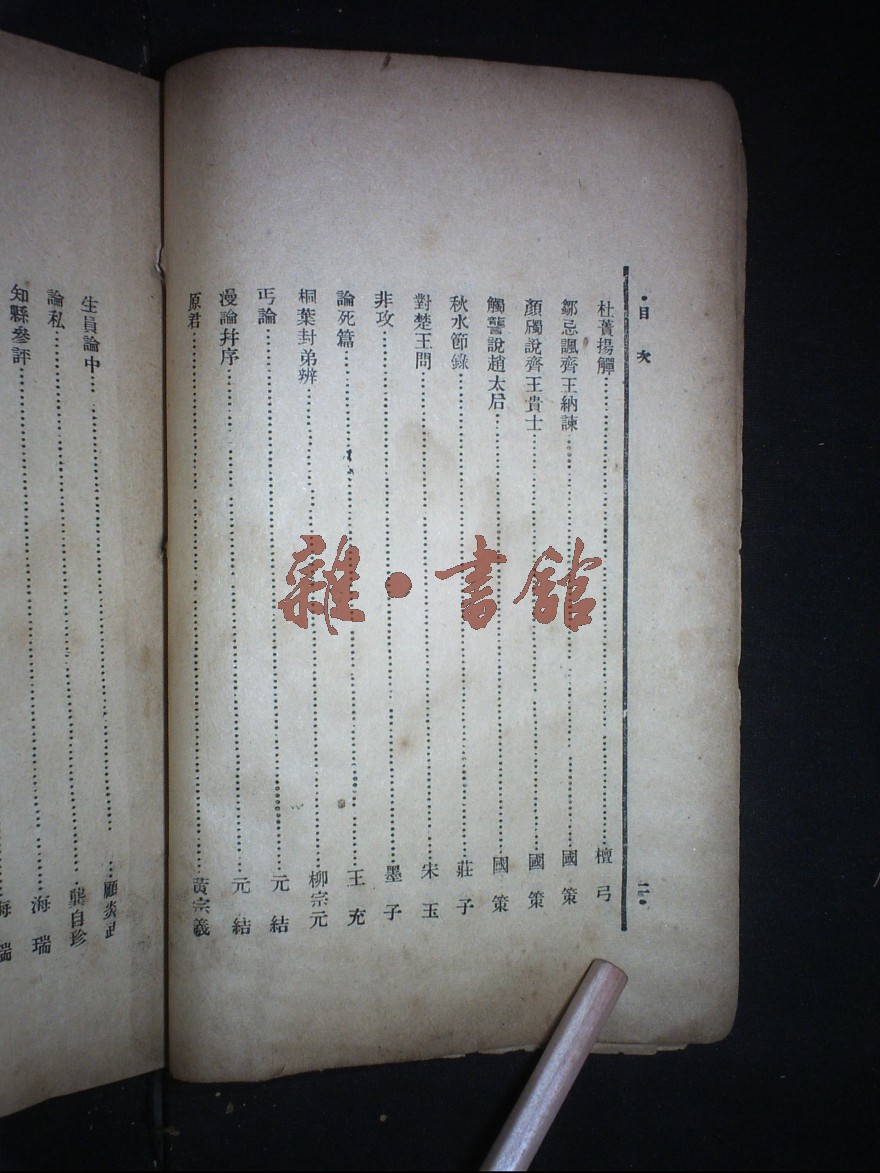 ·目次 二·
杜蕢揚觶……檀弓
鄒忌諷齊王納諫……國策
顏斶說齊王貴士……國策
觸讋說趙太后……國策
秋水節錄……莊子
對楚王問……宋玉
非攻……墨子
論死篇……王充
桐葉封弟辨……柳宗元
丐論……元結
漫論幷序……元結
原君……黃宗羲
生員論中……顧炎武
論私……龔自珍
知縣參評……海瑞
海瑞
雜·書館